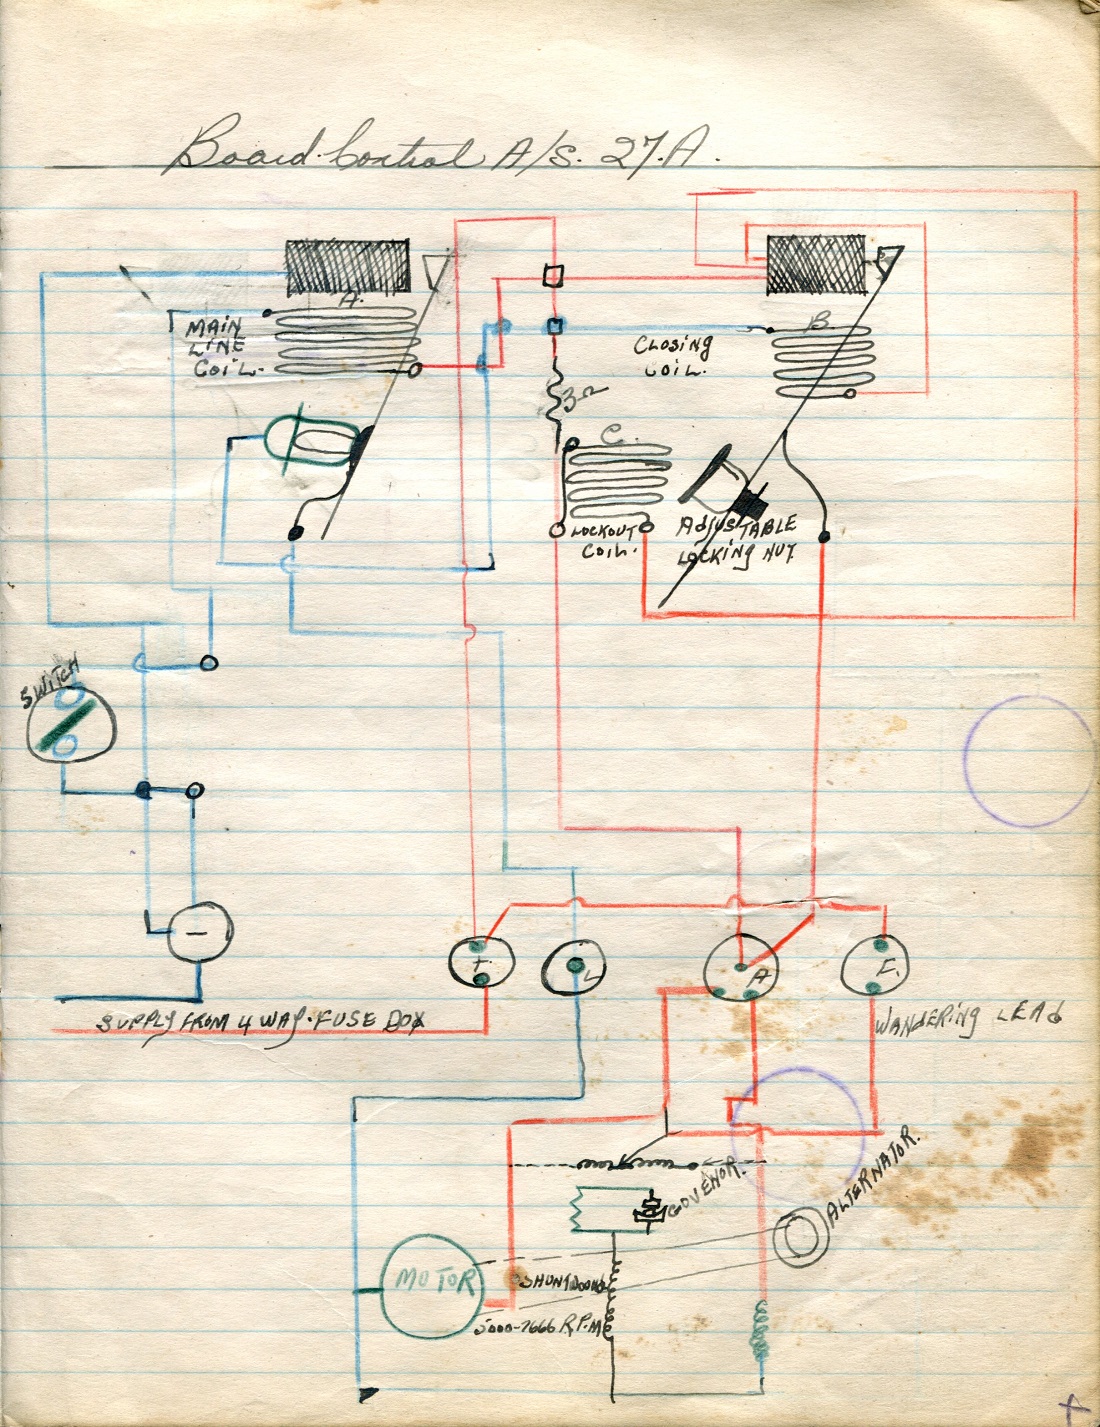 Board Control A/S. 27.A.
A.
MAIN
LINE
COIL.
B.
CLOSING
COIL.
3Ω
C.
LOCKOUT
COIL.
AdjUSTABLE
LOCKING NUT
SWITCH
−
+
L
A
F.
SUPPLY FROM 4 WAY. FUSE BOX
WANDERING LEAd
GOVENOR.
ALTERNATOR.
MOTOR
R.P.M